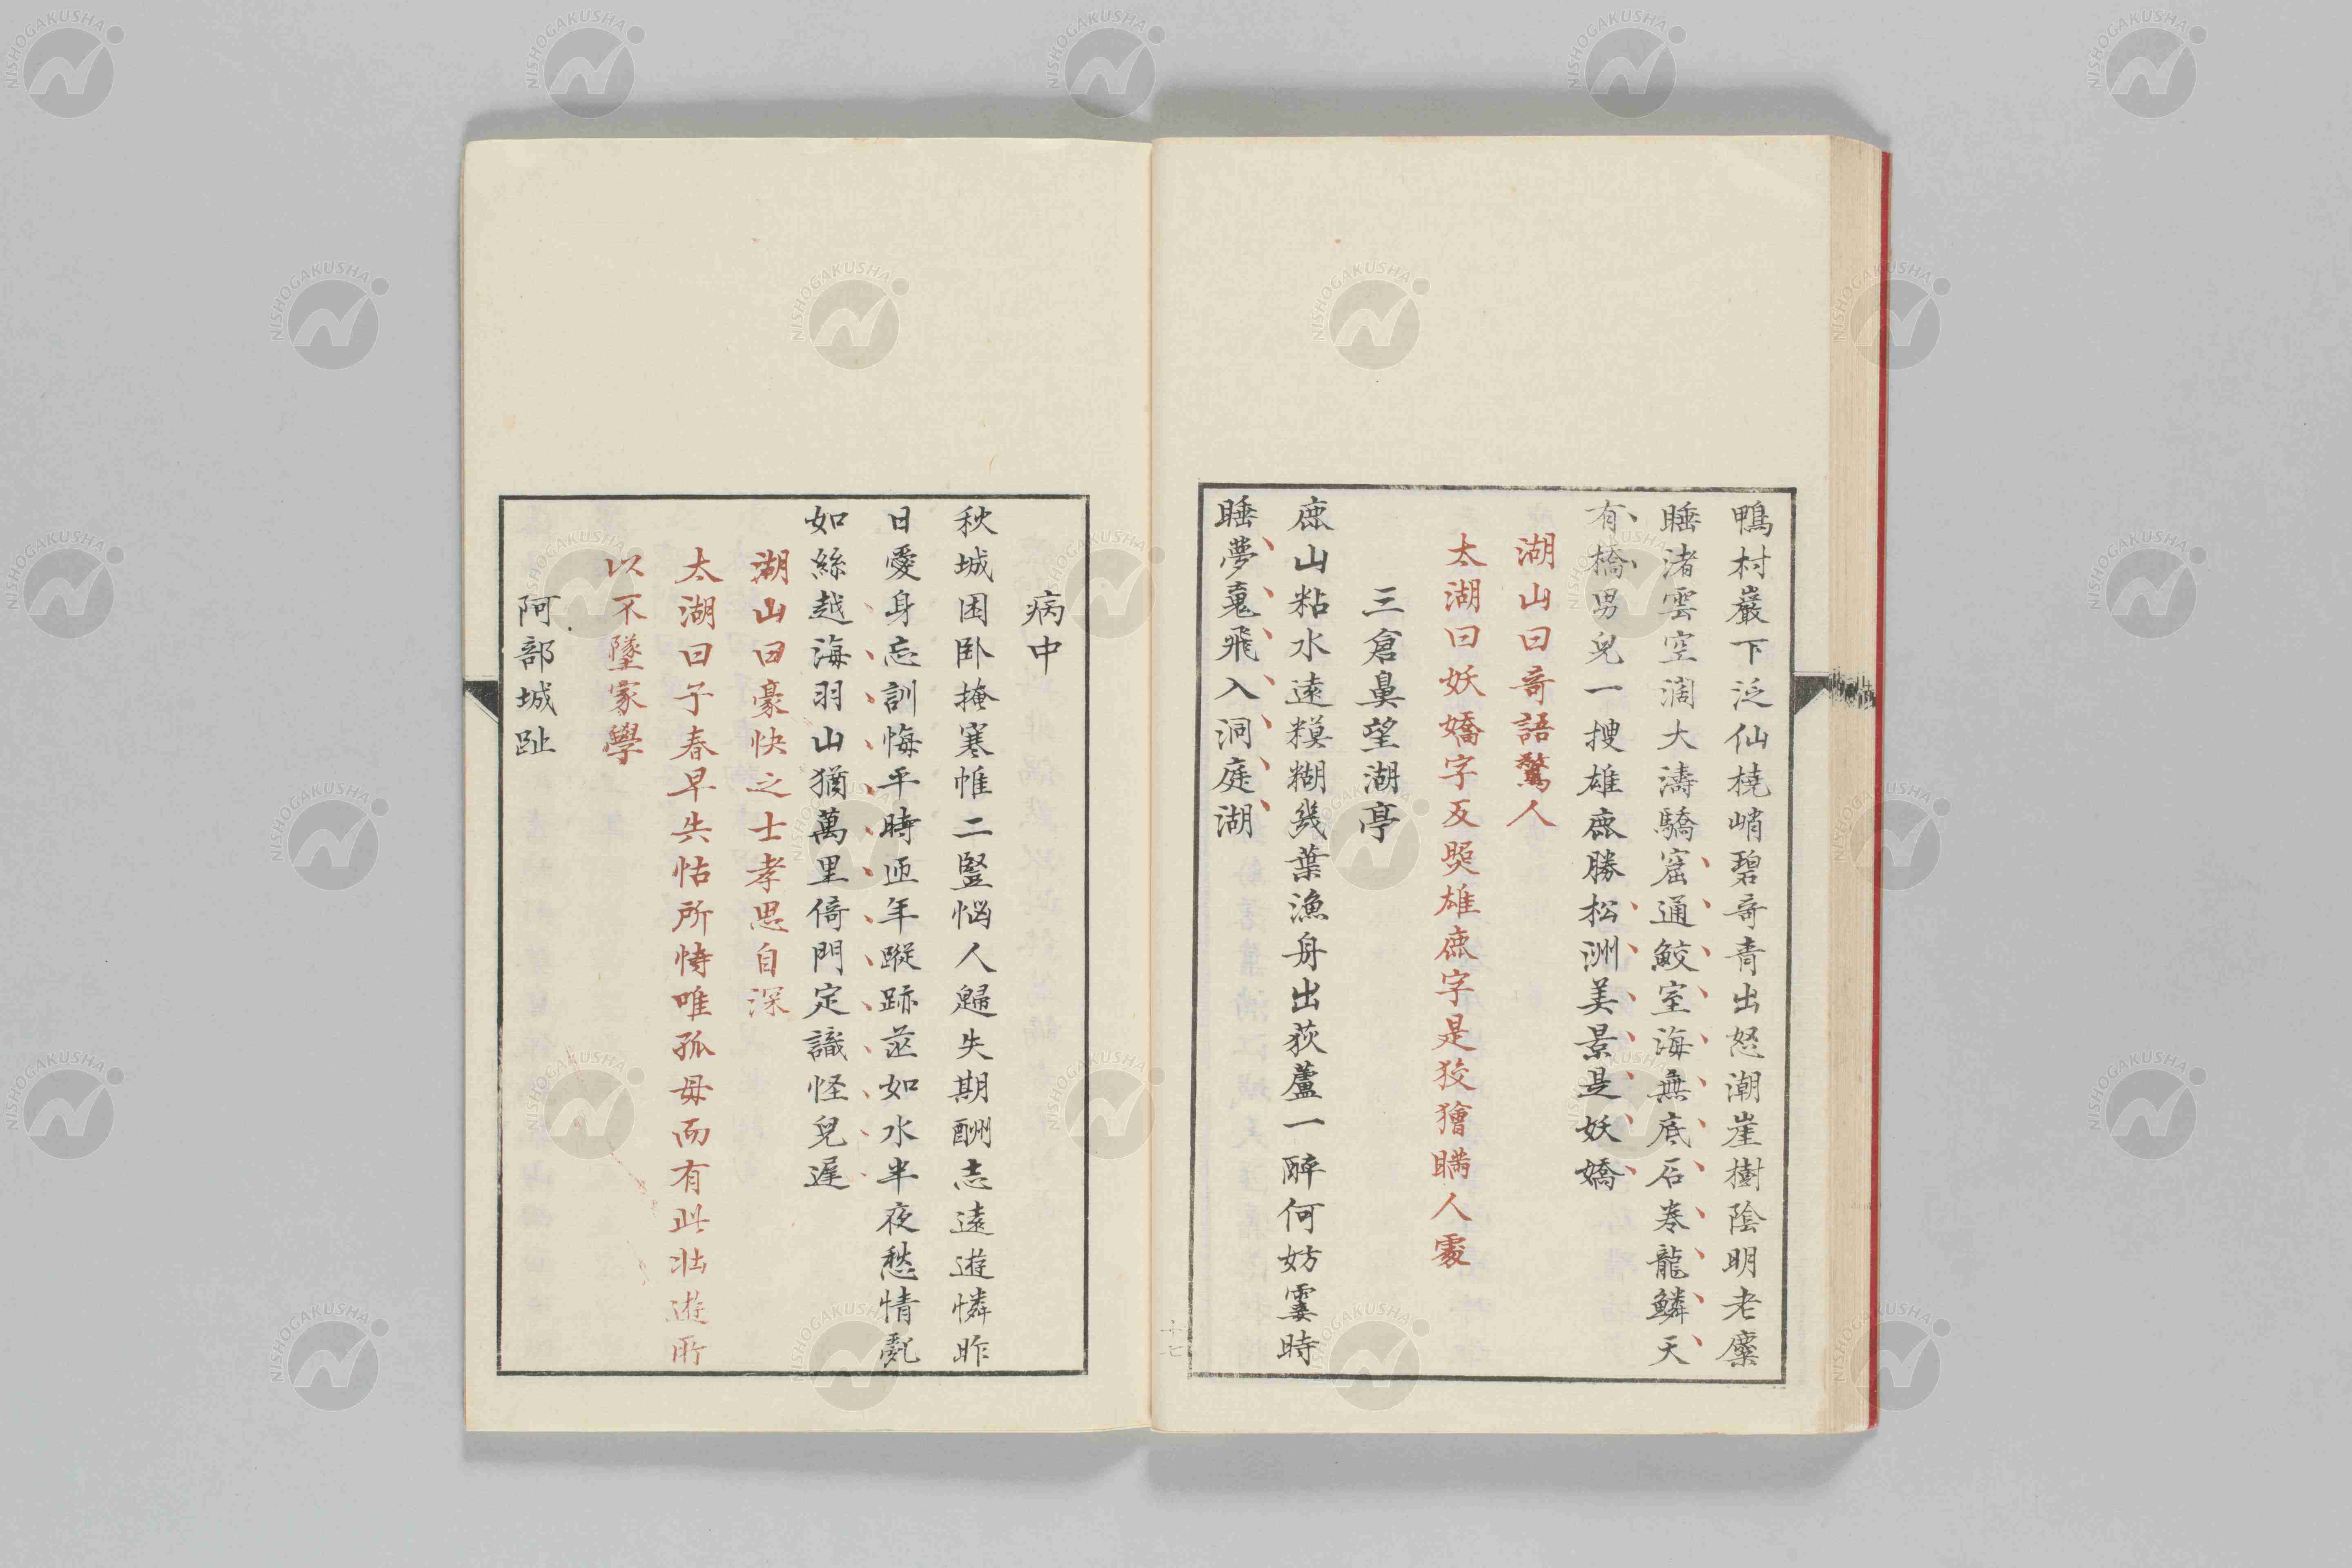 鴨村巖下泛仙橈峭碧奇青出怒潮崖樹陰明老麋
睡渚雲空濶大濤驕窟通鮫室海無底石卷龍鱗天
有橋男兒一搜雄麤勝松洲美景是妖嬌
湖山曰奇語驚人
太湖曰妖嬌字反照雄麤字是狡獪瞞人處
三倉鼻望湖亭
麤山粘水遠糢糊幾葉漁舟出荻蘆一醉何妨霎時
睡夢魂飛入洞庭湖
十七
病中
秋城困臥掩寒帷二豎惱人歸失期酬志遠遊憐昨
日愛身忘訓悔平時匝年蹤跡茫如水半夜愁情亂
如絲越海羽山猶萬里倚門定識怪兒遲
湖山曰豪快之士孝思自深
太湖曰子春早失怙所恃唯孤母而有此壯遊所
以不墜家學
阿部城趾
NISHOGAKUSHA